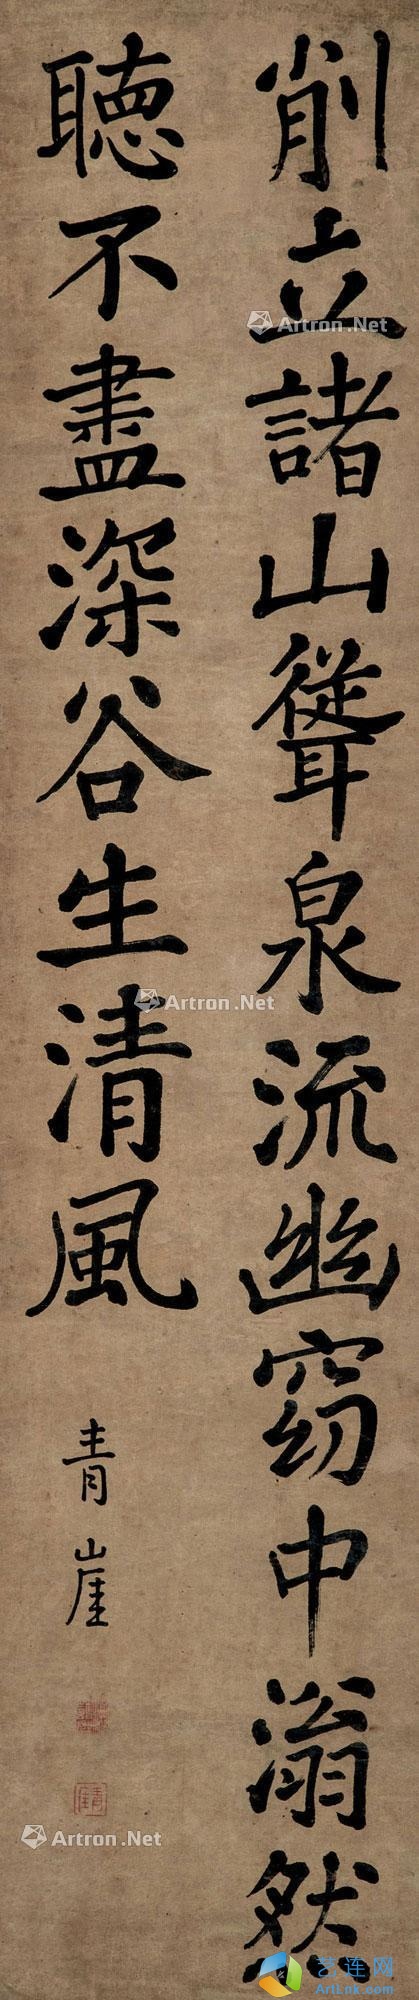 削立諸山聳泉流幽窈中滃然
聽不盡深谷生清風
青崖
Artron.Net
Artron.Net
Artron.Net
艺连网
ArtLinx.com